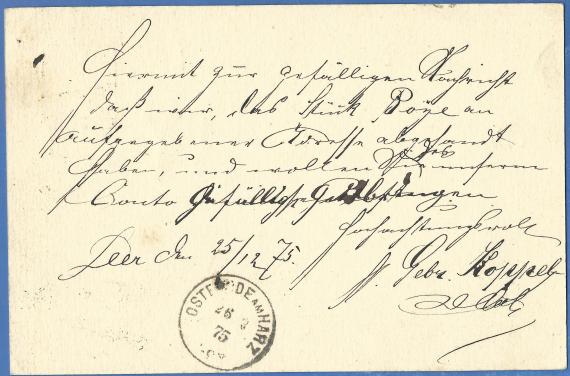 Hiermit zur gefälligen Nachricht
daß wir, das Stück Röge an
aufgegebener Adresse abgesandt
haben, und wollen Sie unserm
Conto gefälligst
Hochachtungsvoll
Leer den 25/12 75.
Gebr. Koppel
OSTERODE AM HARZ
26
75